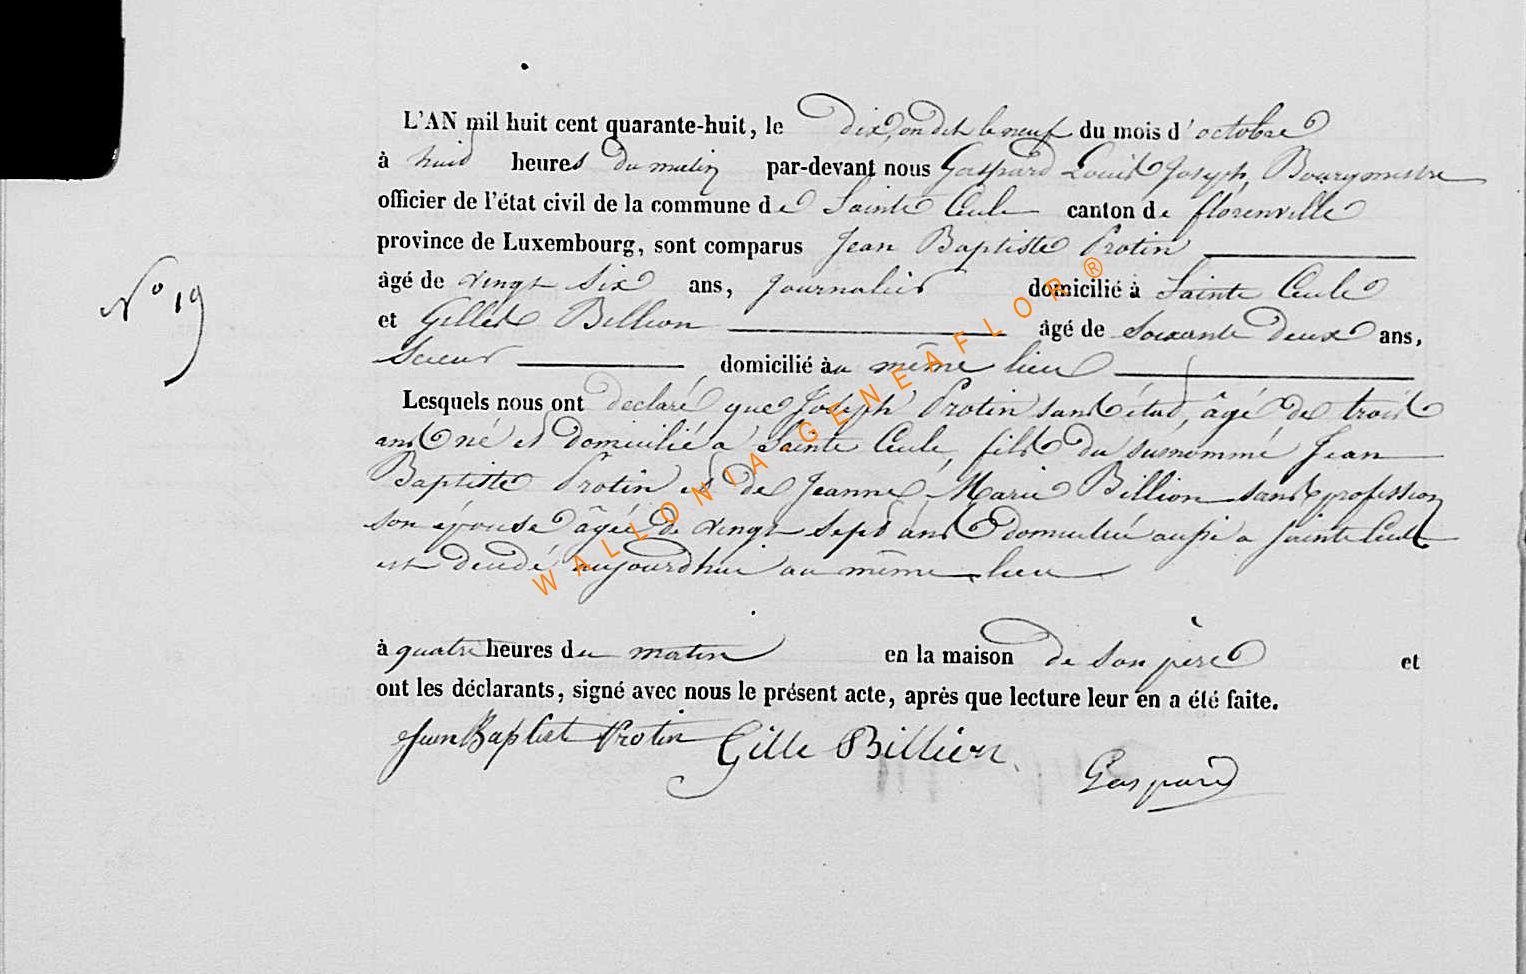 L'AN mil huit cent quarante-huit, le dix, on dit le neuf du mois d'octobre
à huit heures du matin par-devant nous Gaspard Louis Joseph, Bourgmestre
officier de l'état civil de la commune de Sainte Cecile canton de florenville
province de Luxembourg, sont comparus Jean Baptiste Protin
âgé de vingt six ans, journalier domicilié à Sainte Cecile
N° 19
et Gilles Billion âgé de soixante deux ans,
Scieur domicilié au même lieu
Lesquels nous ont déclaré que Joseph Protin sans état, âgé de trois
ans né et domicilié a Sainte Cecile, fils du susnommé Jean
Baptiste Protin et de Jeanne Marie Billion sans profession
son épouse âgée de vingt sept ans domiciliée aussi a Sainte Cecile
est décédé aujourdhui au même lieu
à quatre heures du matin en la maison de son père et
ont les déclarants, signé avec nous le présent acte, après que lecture leur en a été faite.
Jean Baptist Protin Gille Billion. Gaspard
WALLONIA GENEAFLOR ®